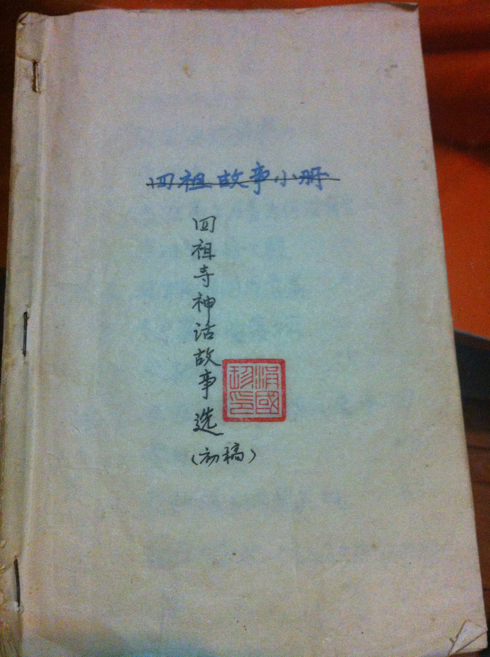 四祖故事小册
四祖寺神话故事选
（初稿）